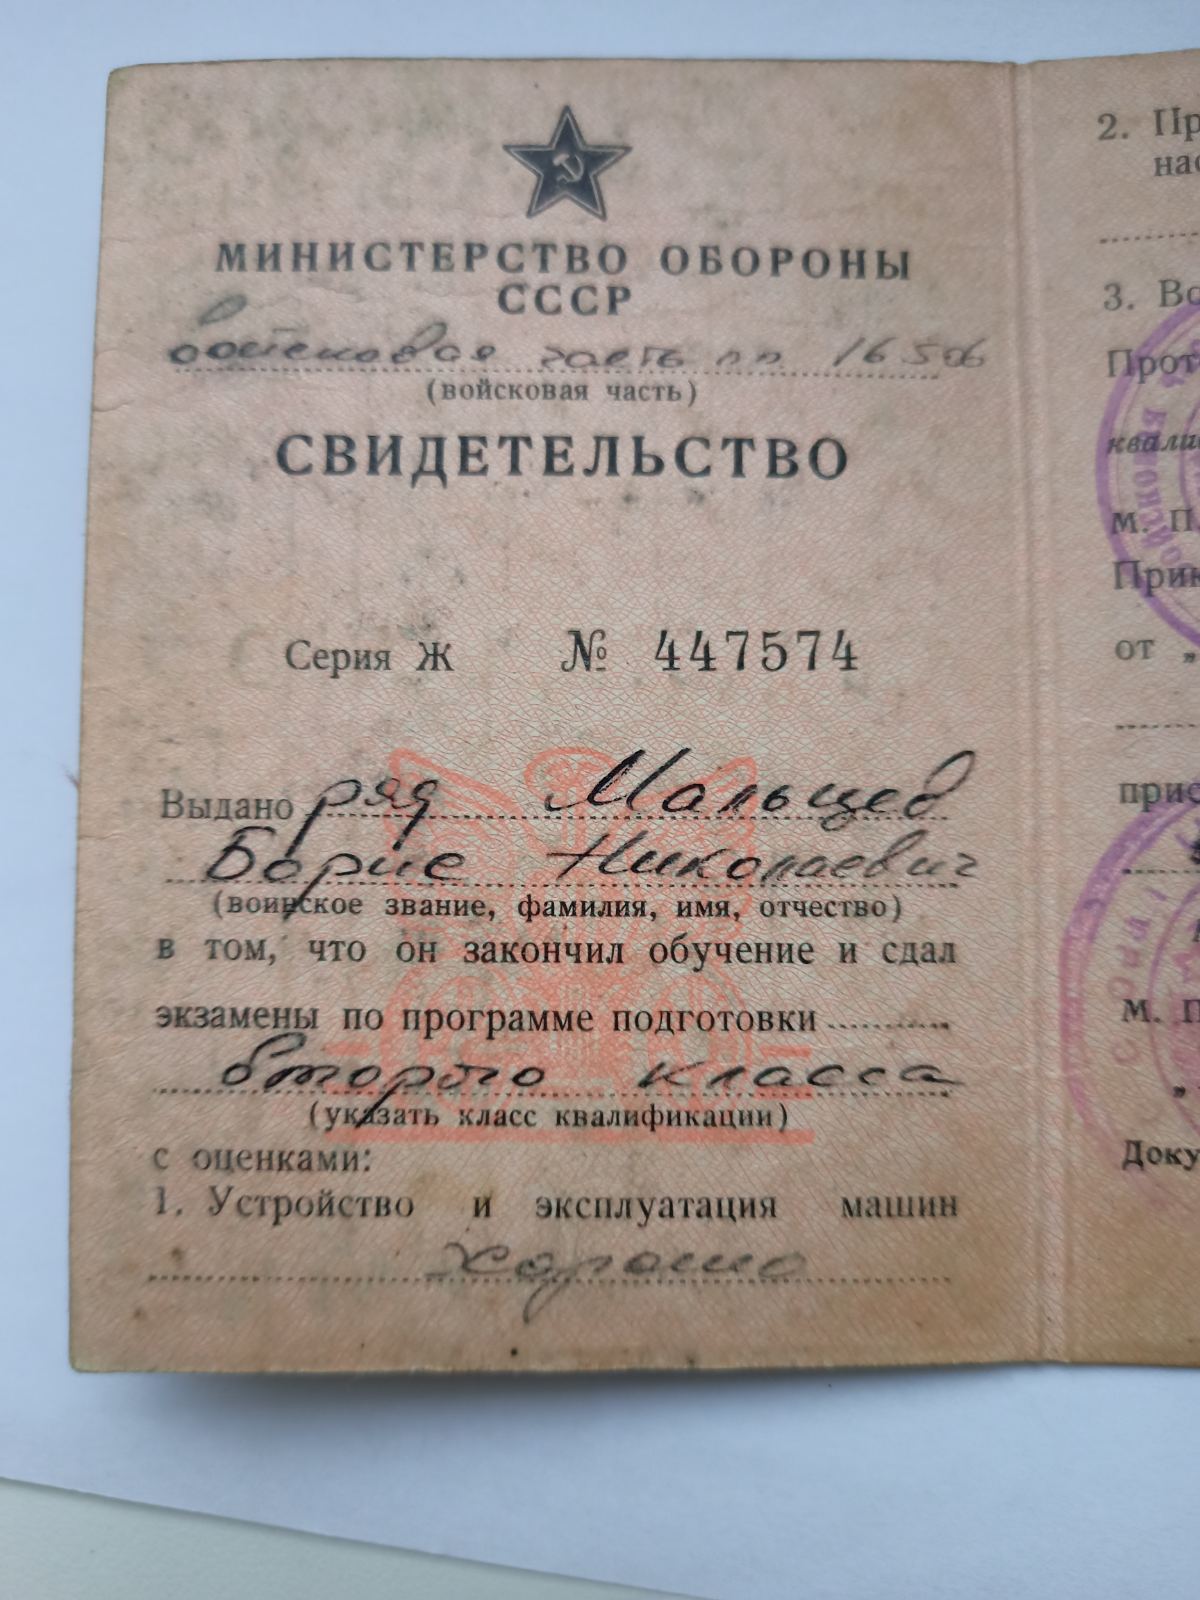 МИНИСТЕРСТВО ОБОРОНЫ
СССР
войсковая часть пп 16506
(войсковая часть)
СВИДЕТЕЛЬСТВО
Серия Ж № 447574
Выдано ряд Мальцев
Борис Николаевич
(воинское звание, фамилия, имя, отчество)
в том, что он закончил обучение и сдал
экзамены по программе подготовки
второго класса
(указать класс квалификации)
с оценками:
1. Устройство и эксплуатация машин
хорошо
2. Пр
нас
3. Во
Прот
квали
М. П
Прик
от „
прис
М. П
„
Доку